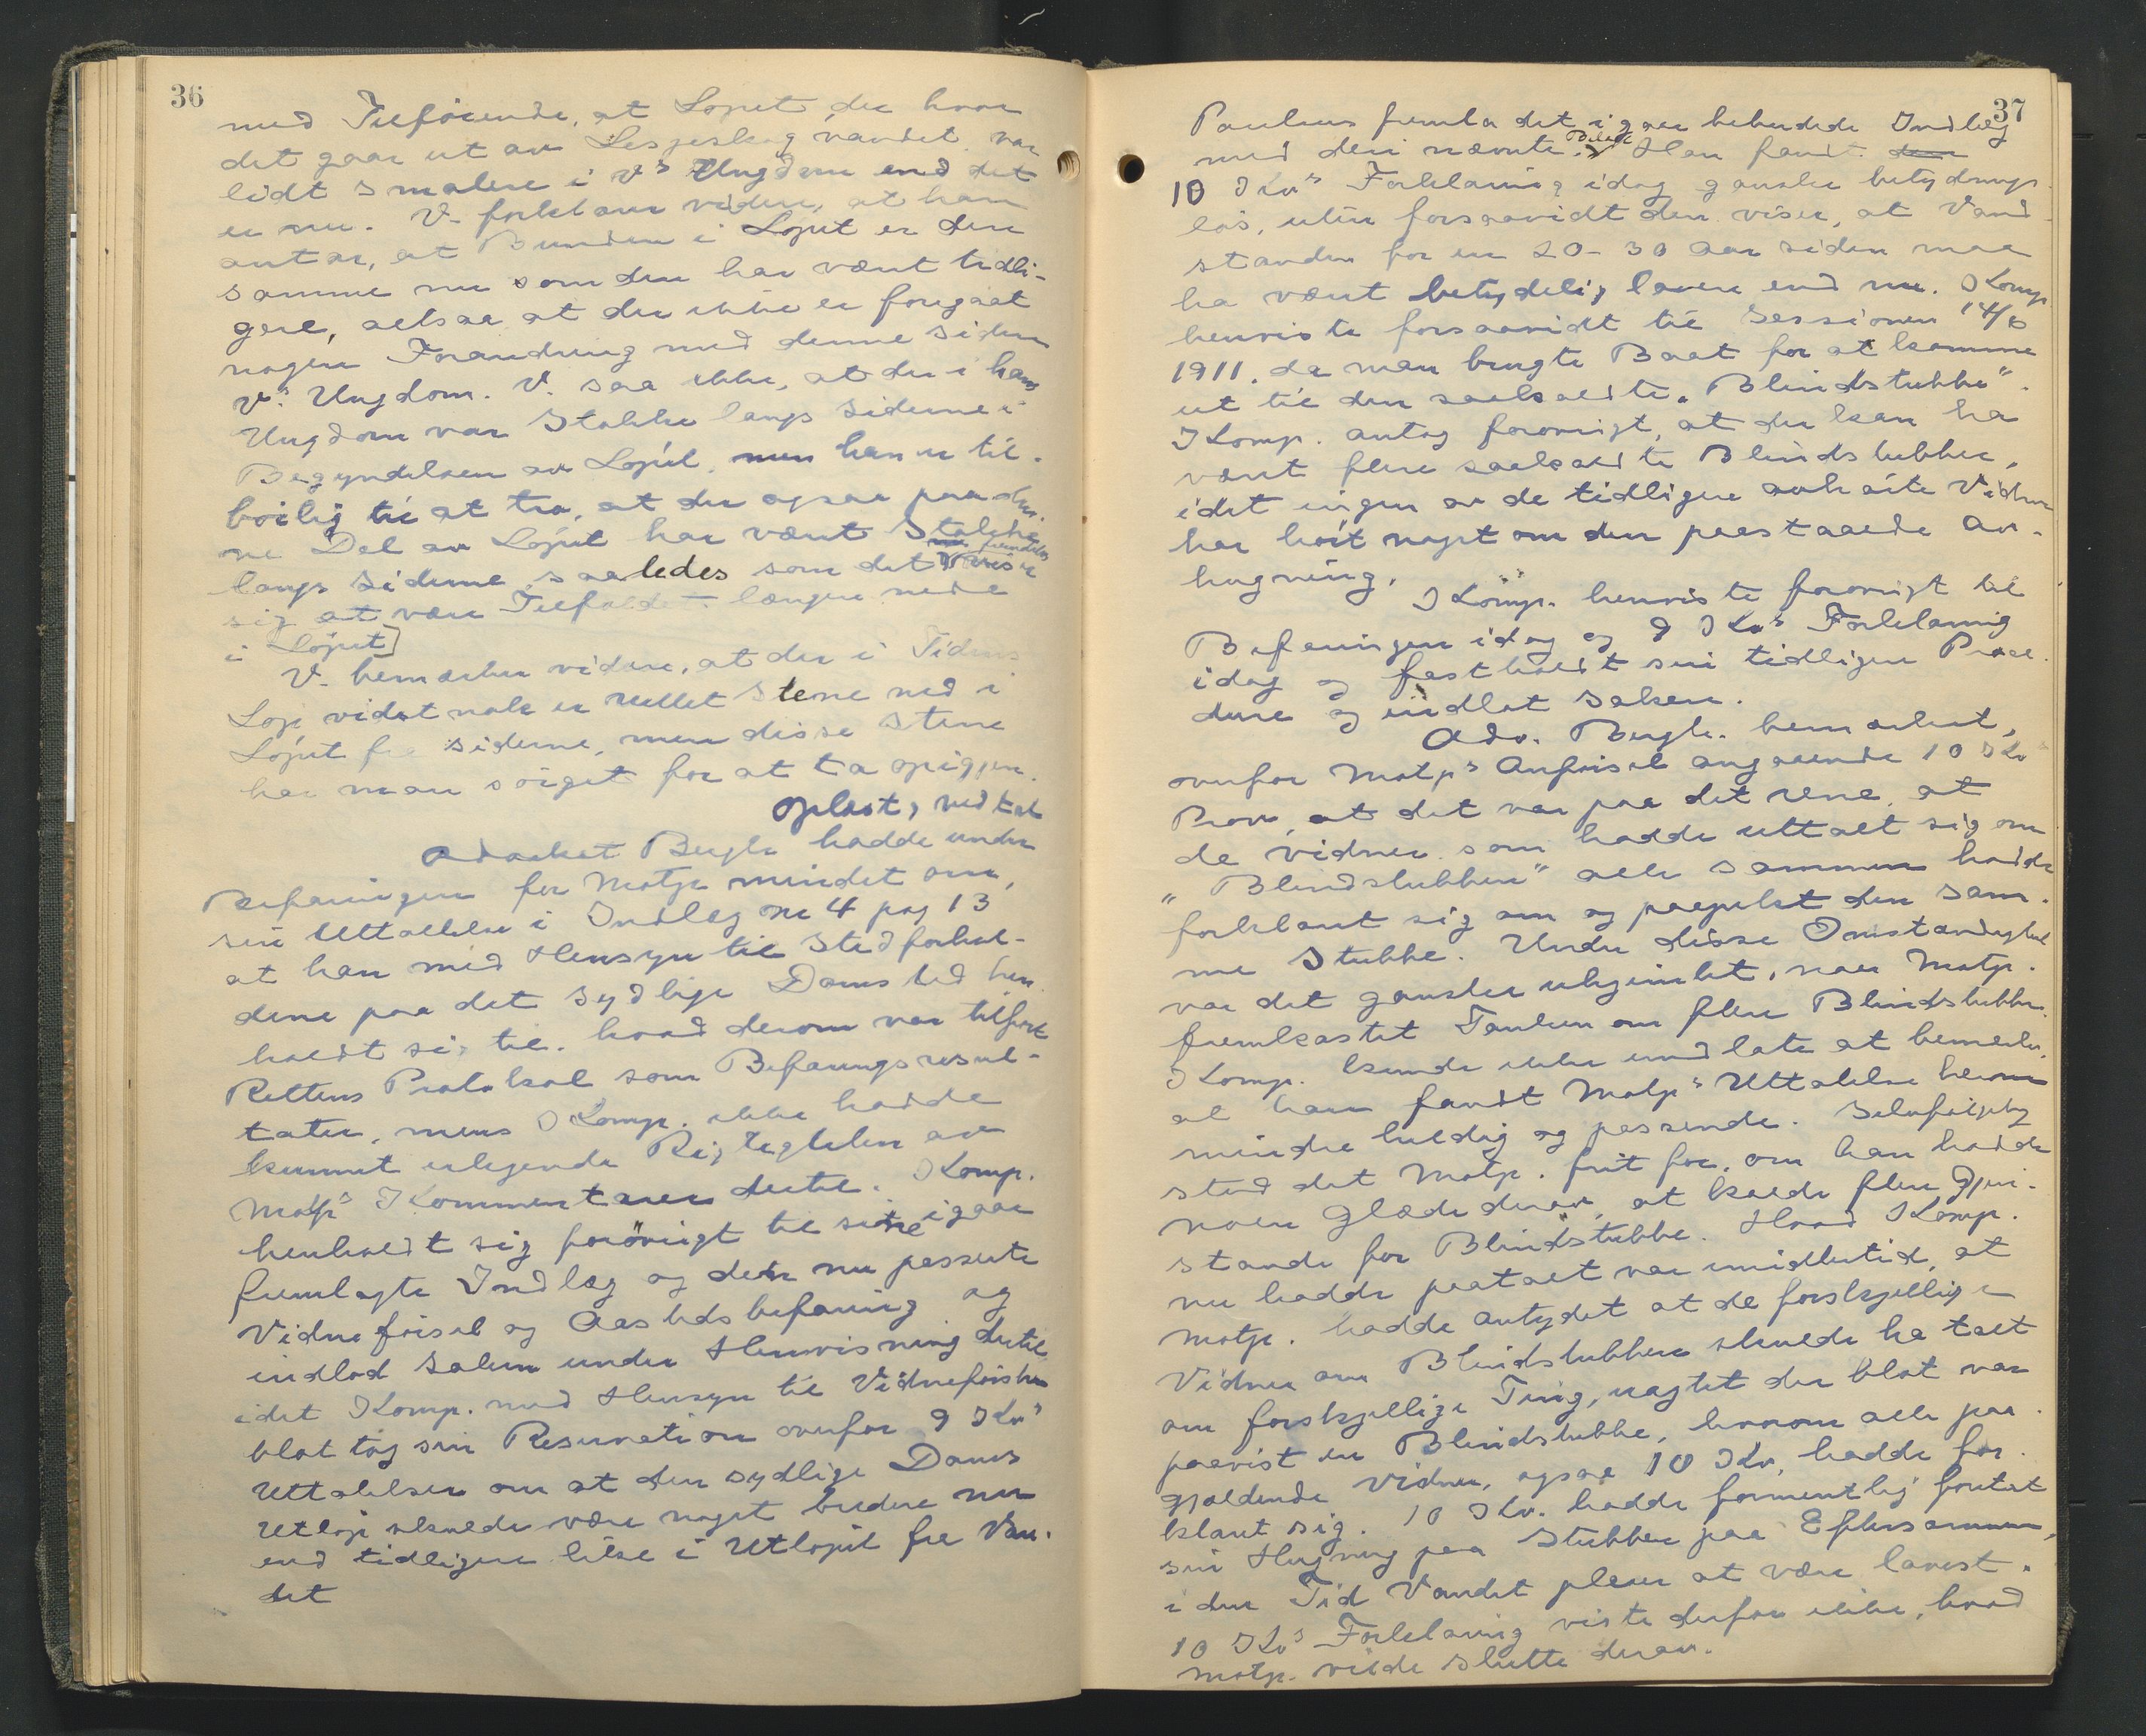 36
med Tilføiende, at Løpet der hvor
det gaar ut av Lesjeskogvandet var
lidt smalere i V's Ungdom end det
er nu. V. forklarer videre, at han
antar, at Bunden i Løpet er den
samme nu som den har vært tidli-
gere, altsaa at der ikke er foregaat
nogen Forandring med denne siden
V's Ungdom. V. saa ikke, at der i hans
Ungdom var Stokke langs Siderne i
Begyndelsen av Løpet, men han er til-
bøilig til at tro, at der ogsaa paa den-
ne Del av Løpet har vært Stokke
langs Siderne saaledes som det fremdeles viser
sig at være Tilfældet længere nede
i Løpet]
V. bemærker videre, at der i Tidens
Løp vidstnok er rullet Stene ned i
Løpet fra Siderne, men disse Stene
har man sørget for at ta op igjen.
Oplæst, vedtat
Advokat Bugge hadde under
Befaringen for Motp. mindet om,
sin Uttalelse i Indlæg nr 4 pag 13
at han med Hensyn til Stedforhol-
dene paa det sydlige Damsted hen-
holdt sig til, hvad derom var tilført
Rettens Protokol som Befaringsresul-
tater, mens I Komp. ikke hadde
kunnet erkjende Rigtigheten av
Motp's Kommentarer dertil. I Komp.
henholdt sig forøvrigt til sine igaar
fremlagte Indlæg og den nu passerte
Vidneførsel og Aastedsbefaring og
indlod Saken under Henvisning dertil
idet I Komp. med Hensyn til Vidneførselen
blot tog sin Reservation overfor 9 I Kv's
Uttalelser om at den sydlige Dams
Utløp skulde være noget bredere nu
end tidligere likesom i Utløpet fra Van-
det
37
Paulsen fremla det igaar bebudede Indlæg
med den nævnte Bilag. Han fandt
10 I Kv's Forklaring idag ganske betydnings-
løs, uten forsaavidt den viser, at Vand-
standen for en 20-30 Aar siden maa
ha vært betydelig lavere end nu. I Komp
henviste forsaavidt til Sessionen 14/6
1911, da man brugte Baat for at komme
ut til den saakaldte "Blindstubbe".
I Komp. antog forøvrigt, at der kan ha
vært flere saakaldte Blindstubber,
idet ingen av de tidligere avhørte Vidner
har hørt noget om den paastaaede Av-
hugning.
I Komp. henviste forøvrigt til
Befaringen idag og 9 I Kv's Forklaring
idag og fastholdt sin tidligere Proce-
dure og indlot Saken.
Adv. Bugge bemærket,
overfor Motp's Anførsel angaaende 10 I Kv
Prov, at det var paa det rene, at
de Vidner som hadde uttalt sig om
"Blindstubben" alle sammen hadde
forklart sig om og paapekt den sam-
me Stubbe. Under disse Omstændighet
var det ganske ubegrundet, naar Motp.
fremkastet Tanken om flere Blindstubber.
I Komp. kunde ikke undlate at bemerke,
at han fandt Motp's Uttalelse herom
mindre heldig og passende. Selvfølgelig
stod det Motp. frit for, om han hadde
noen Glæde derav, at kalde flere Gjen-
stande for Blindstubbe. Hvad I Komp.
nu hadde paatalt var imidlertid, at
Motp. hadde antydet at de forskjellige
Vidner om Blindstubben skulde ha talt
om forskjellige Ting, uagtet der blot var
paavist en Blindstubbe, hvorom alle paa-
gjældende Vidner, ogsaa 10 I Kv, hadde for-
klart sig. 10 I Kv. hadde formentlig foretat
sin Hugning paa Stubben paa Eftersommeren,
i den Tid Vandet pleier at være lavest.
10 I Kv's Forklaring viste derfor ikke, hvad
Motp. vilde slutte derav.